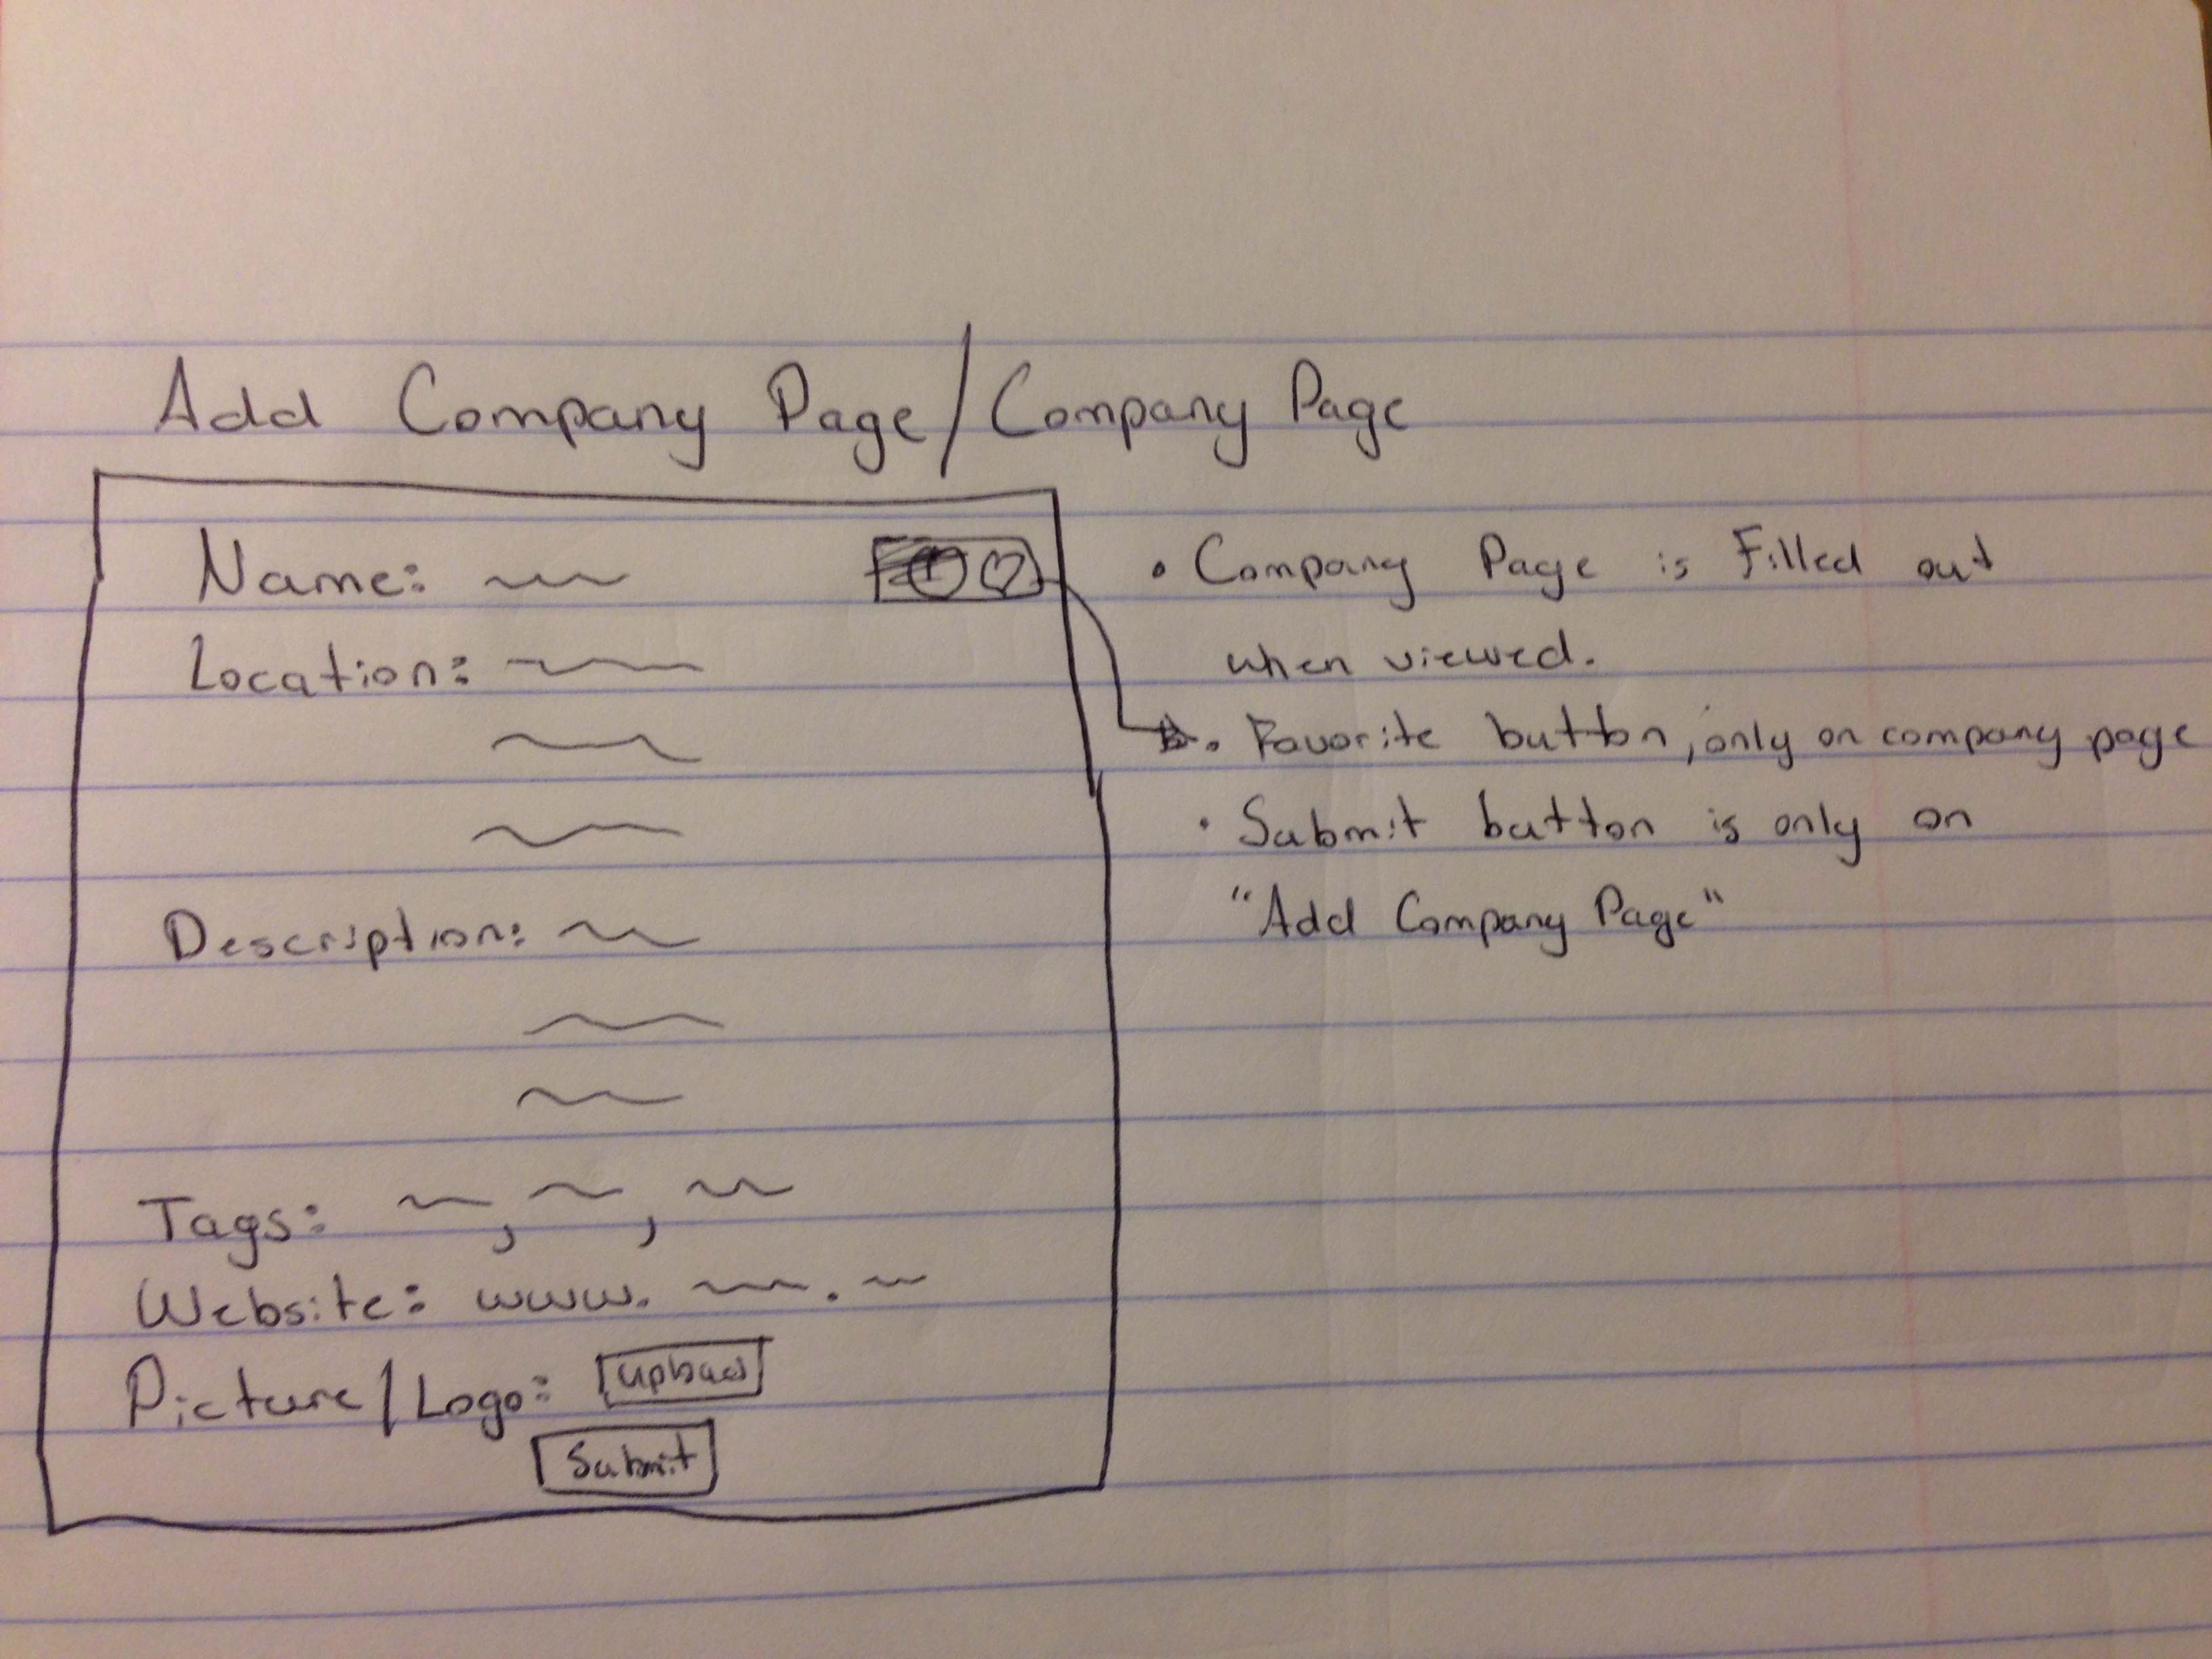 Add Company Page/Company Page
Name:
Location:
Description:
Tags: , ,
Website: www. .
Picture/Logo: Upload
Submit
• Company Page is Filled out
when viewed.
• Favorite button, only on company page
• Submit button is only on
"Add Company Page"